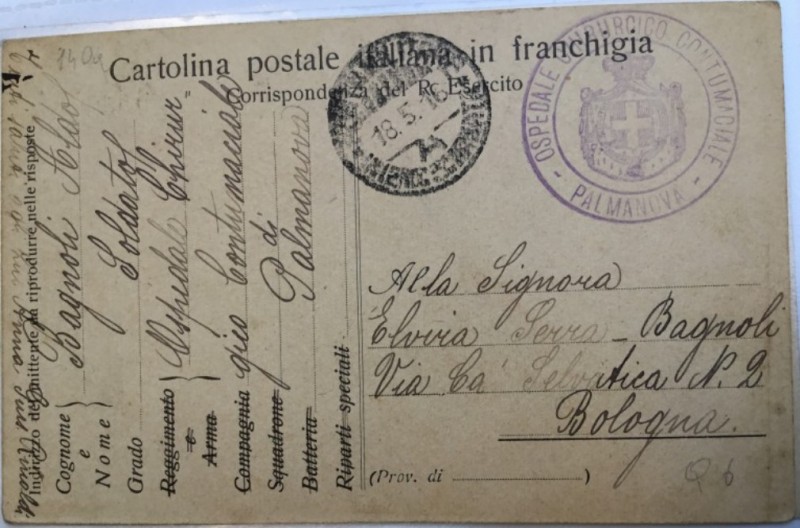 Cartolina postale italiana in franchigia
" Corrispondenza del R. Esercito
18.5.16
OSPEDALE CHIRURGICO CONTUMACIALE
- PALMANOVA -
Alla Signora
Elvira Serra - Bagnoli
Via Ca' Selvatica N. 2
Bologna.
(Prov. di )
Indirizzo del mittente da riprodurre nelle risposte
Cognome e Nome } Bagnoli Aldo
Grado Soldato
Reggimento e Arma } Ospedale Chirur
Campagnia gico Contumaciale
Squadrone di
Batteria Palmanova
Riparti speciali